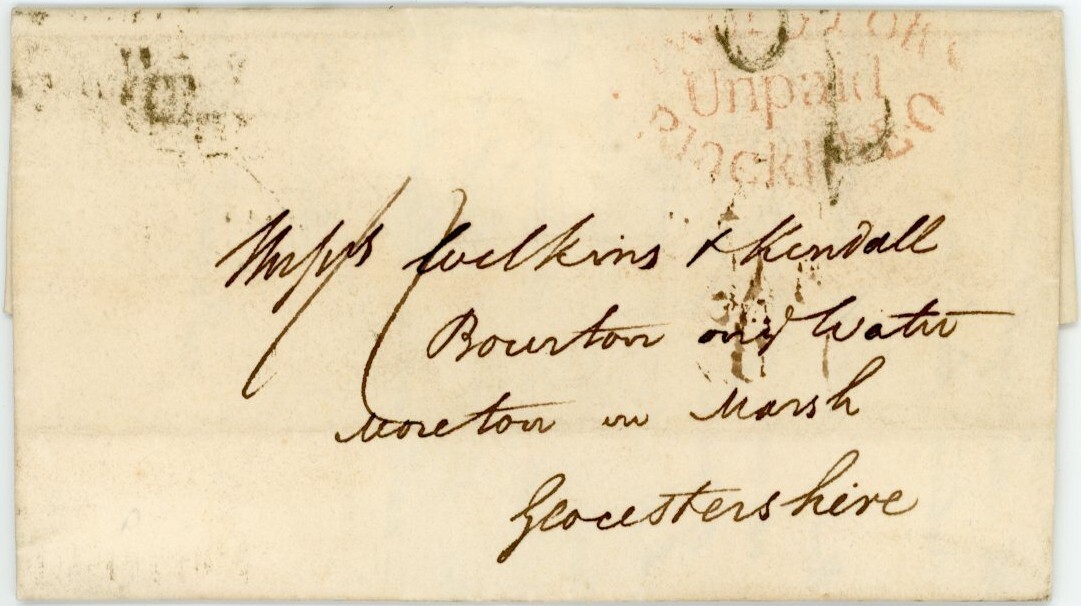 Unpaid
Messrs Wilkins & Kendall
Bourton on ye Water
Moreton in Marsh
Glocestershire